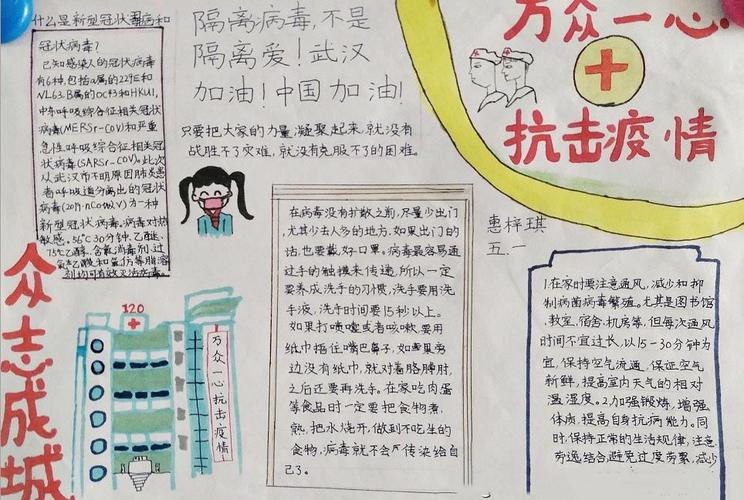 什么是新型冠状病毒病和
冠状病毒?
已知感染人的冠状病毒
有6种,包括α属的229E和
NL63.B属的OC43和HKU1,
中东呼吸综合征相关冠状
病毒(MERSr-CoV)和严重
急性呼吸综合征相关冠
状病毒(SARSr-CoV)。此次
从武汉市不明原因肺炎患
者呼吸道分离出的冠状
病毒(2019-nCoV)为一种
新型冠状病毒。病毒对热
敏感。56℃30分钟.乙醚.
75%乙醇.含氯消毒剂.过
氧乙酸和氯仿等脂溶
剂均可有效灭活病毒。
隔离病毒,不是
隔离爱!武汉
加油!中国加油!
只要把大家的力量凝聚起来,就没有
战胜不了灾难,就没有克服不了的困难。
万众一心
抗击疫情
惠梓琪
五.一
众志成城
120
万众一心抗击疫情
在病毒没有扩散之前,尽量少出门
尤其少去人多的地方.如果出门的
话,也要戴好口罩。病毒最容易通
过手的触摸来传递,所以一定
要养成洗手的习惯,洗手要用洗
手液,洗手时间要15秒以上。
如果打喷嚏或者咳嗽要用
纸巾捂住嘴巴鼻子,如果旁
边没有纸巾,就对着胳膊肘,
之后还要再洗手。在家吃肉蛋
等食品时一定要把食物煮,
熟,把水烧开,做到不吃生的
食物,病毒就不会产传染给自
己了。
1.在家时要注意通风,减少和抑
制病菌病毒繁殖。尤其是图书馆
.教室.宿舍.机房等,但每次通风
时间不宜过长,以15-30分钟为
宜,保持空气流通,保证空气
新鲜,提高室内天气的相对
温湿度。2.加强锻炼,增强
体质,提高自身抗病能力。同
时,保持正常的生活规律,注意
劳逸结合避免过度劳累,减少